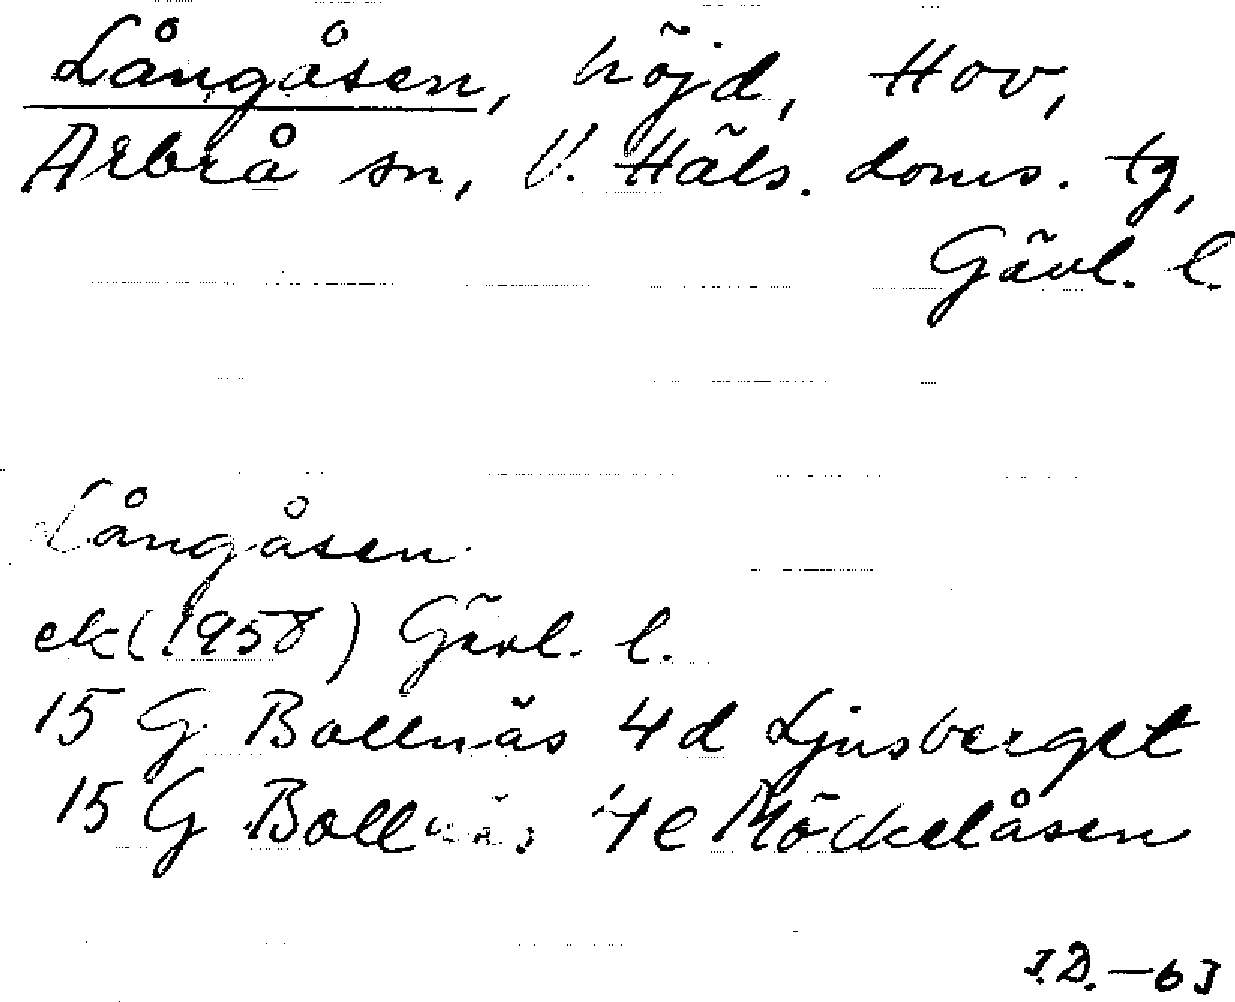 Långåsen, höjd, Hov,
Arbrå sn, V. Häls. doms. tg,
Gävl. l.
Långåsen
ek (1958) Gävl. l.
15 G Bollnäs 4d Ljusberget
15 G Bollnäs 4e Möckelåsen
I.D.-63